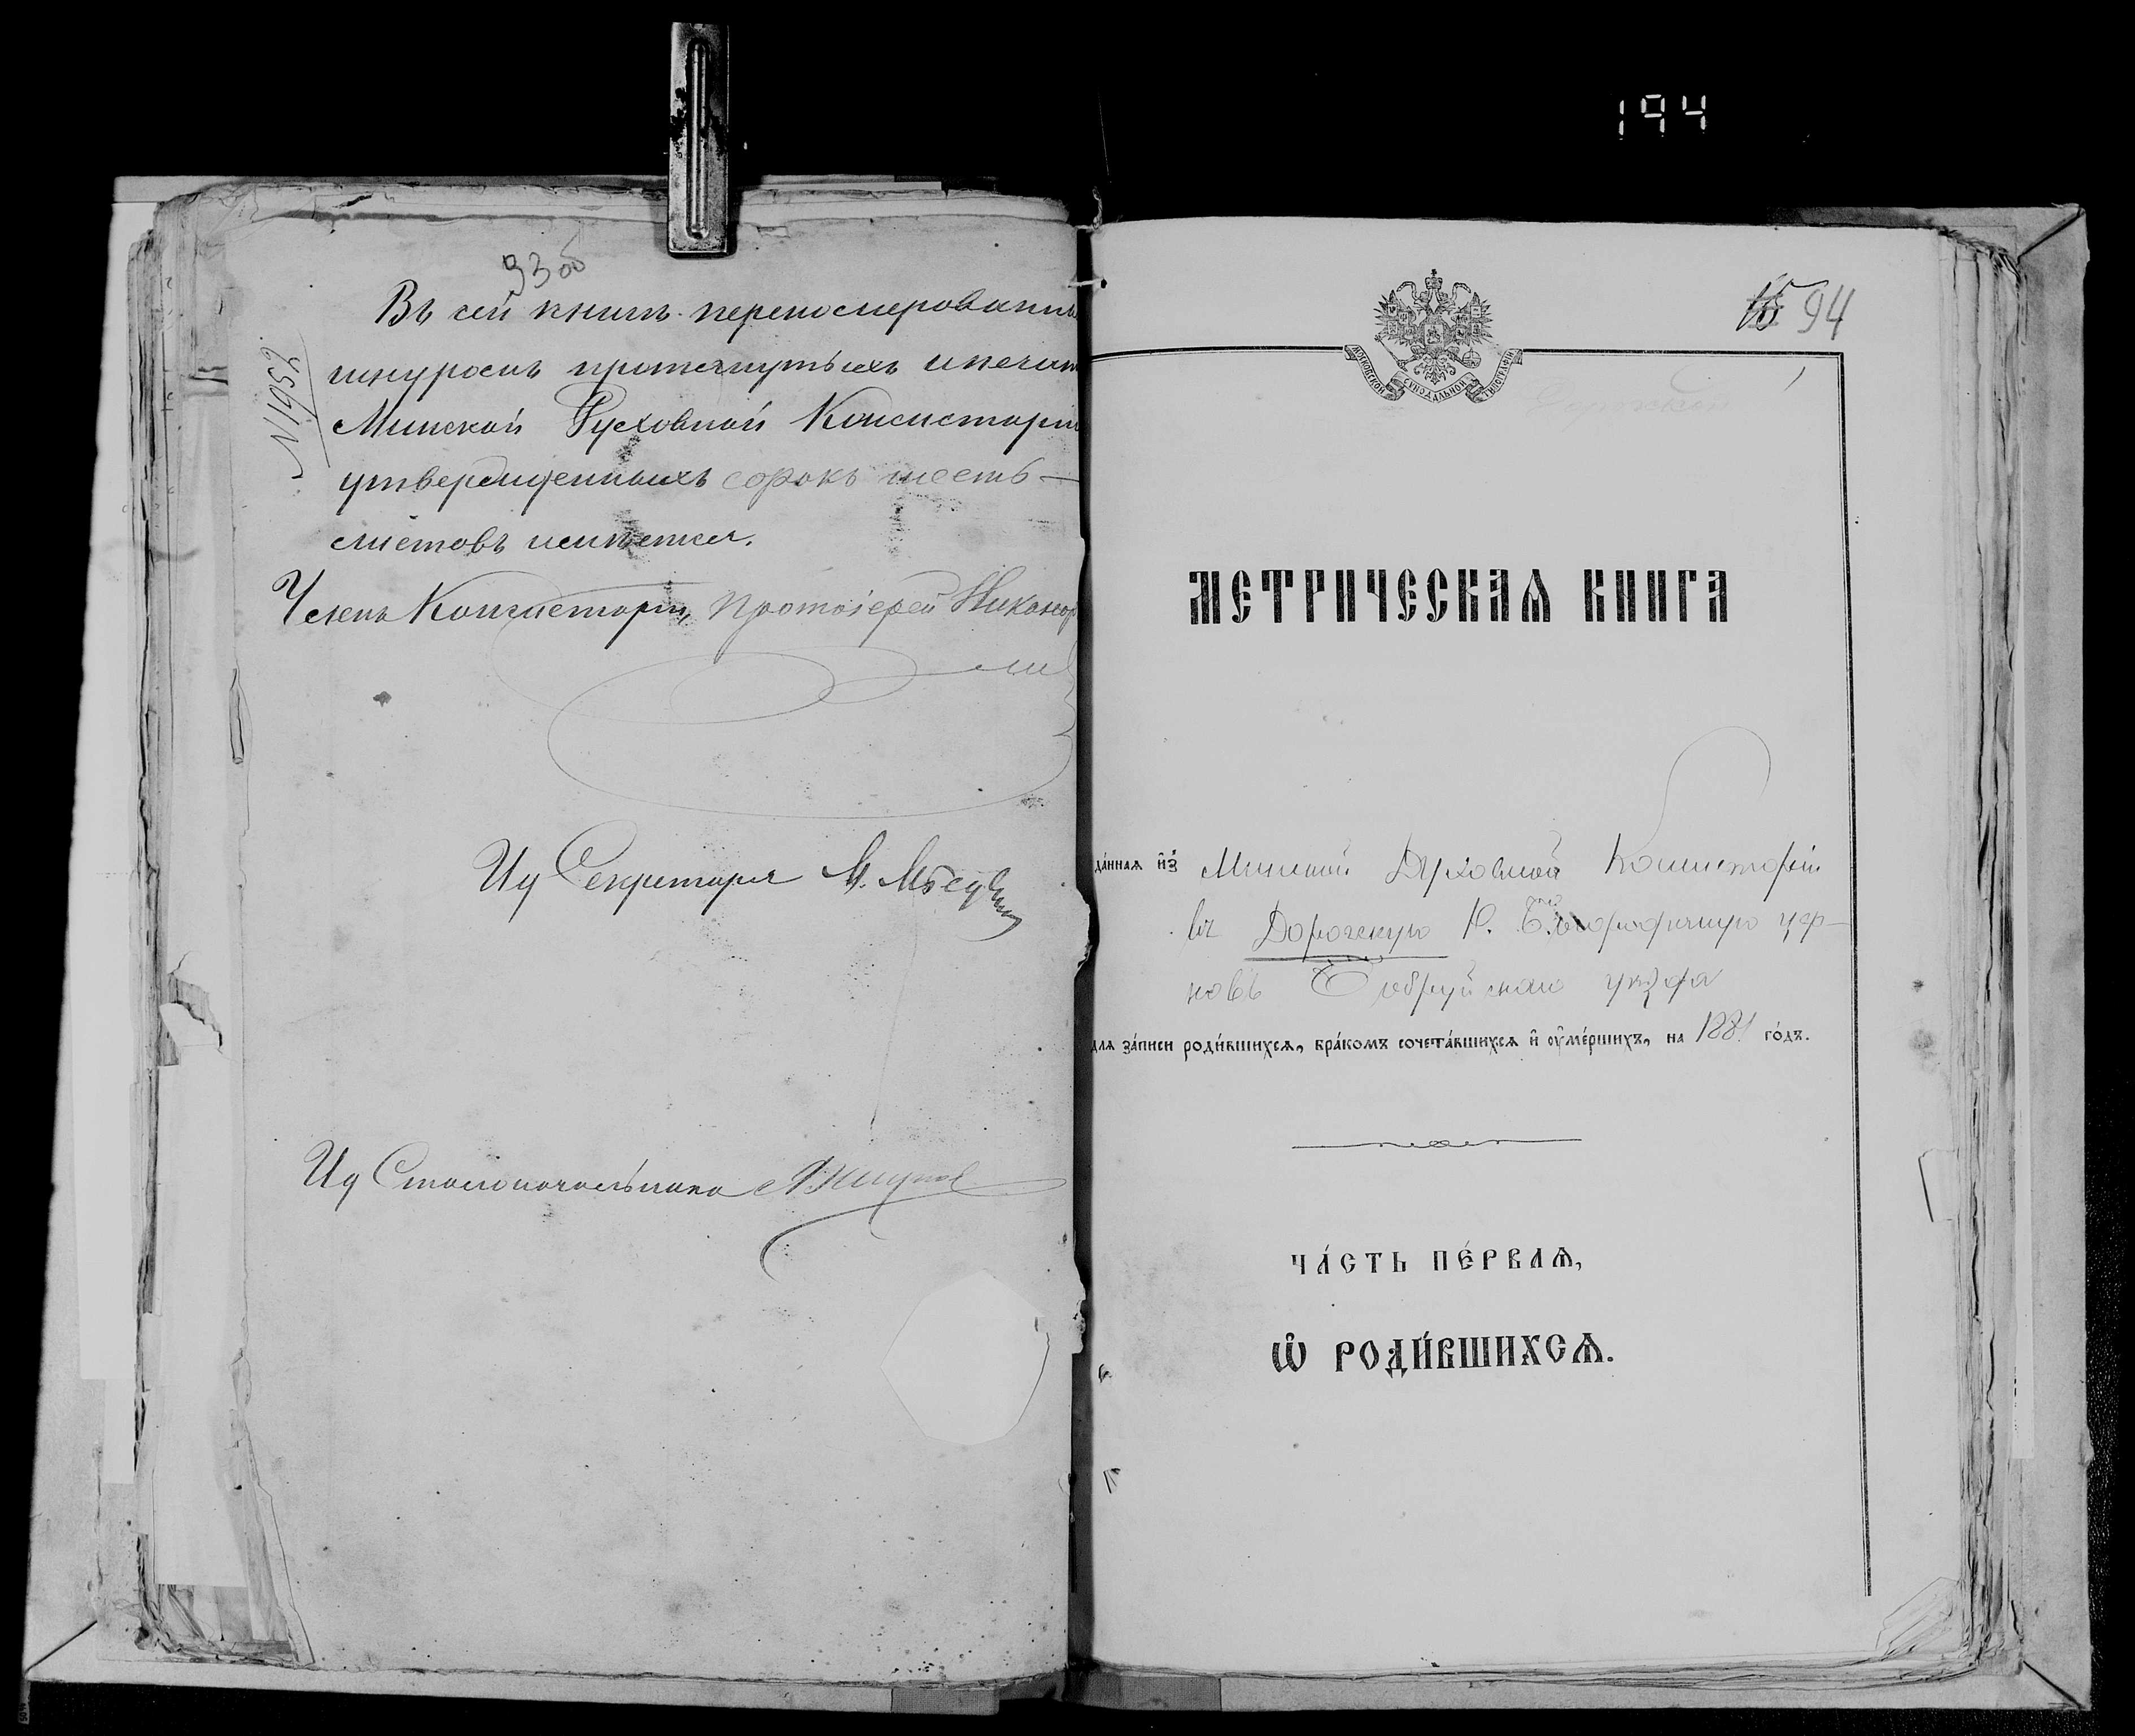 194
93 об
Въ сей книгѣ перенумерованн
шнуромъ протянутыхъ и печат
Минской Духовной Консисторіи
утвержденныхъ сорокъ шесть —
листовъ имѣется.
№ 1952
Членъ Консисторіи, Протоіерей Никанор
Ид Секретаря М.
Ид Столоначальника
15 94
МОСКОВСКОЙ СѴНОДАЛЬНОЙ ТИПОГРАФІИ
МЕТРИЧЕСКАѦ КНИГА
да́ннаѧ и҆з̾ Минской Духовной Консисторіи
въ Дорогскую Р. Богородичную цер-
ковь Бобруйскаго уѣзда
для за́писи роди́вшихсѧ, бра́комъ сочета́вшихсѧ и҆ оу҆ме́ршихъ, на 1881 го́дъ.
ЧА́СТЬ ПЕ́РВАѦ,
Ѡ҆ РОДИ́ВШИХСѦ.